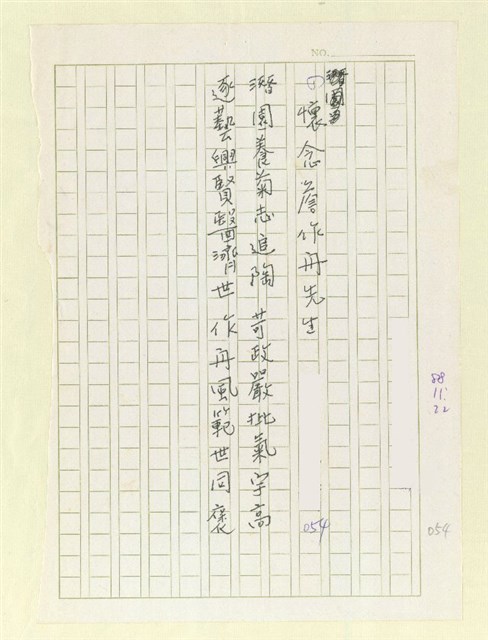 NO.
懷念詹作舟先生
潛園養菊志追陶 苛政嚴批氣宇高
逐藝興賢醫濟世 作舟風範世同褒
054
88
11.
22
054